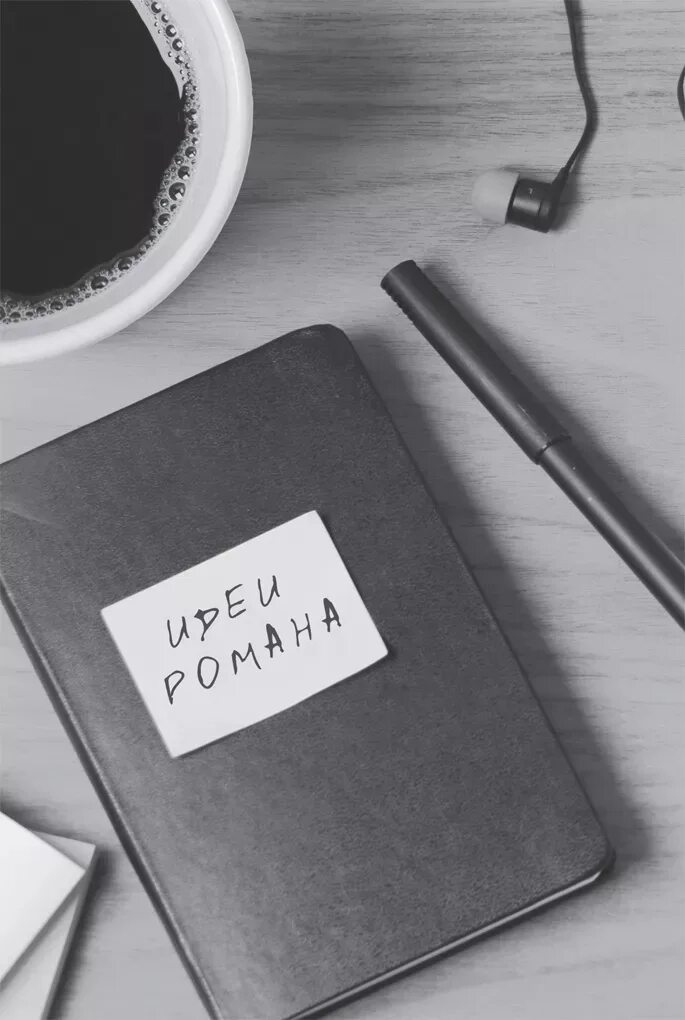 ИДЕИ
РОМАНА